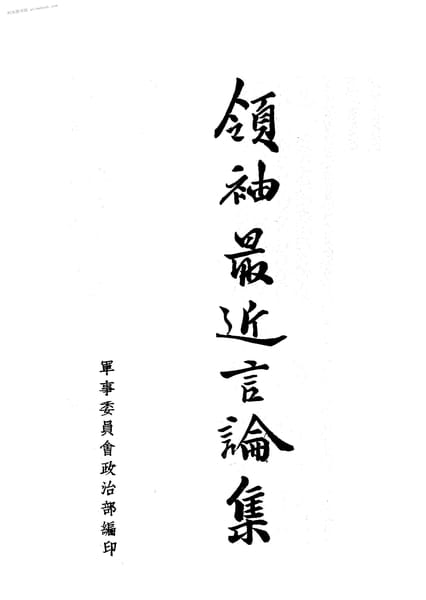 領袖最近言論集
軍事委員會政治部編印